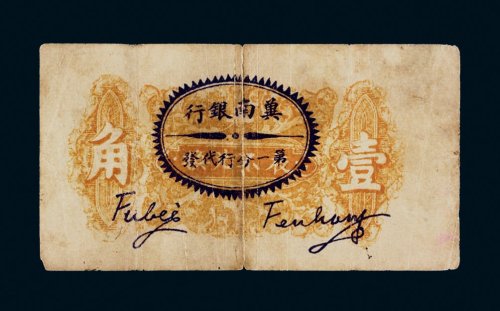 冀南銀行
第一分行代發
壹 角
Fenhang